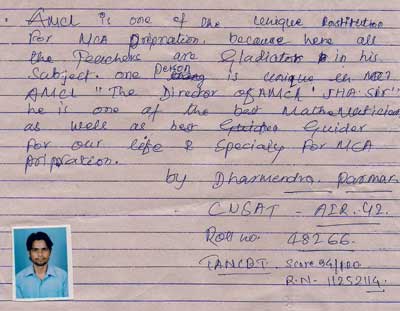 AMCI is one of the unique Institution
For MCA Pripration. because here all
the Teachers are Gladiator in his
Subject. one Person is unique in
AMCI "The Director of AMCI 'JHA Sir'
he is one of the best Mathematician
as well as best Guider
For our life & Specialy For MCA
pripration.
by Dharmendra Parmar
CUSAT - AIR. 42
Roll no. 48266
TANCET Score 94/100
R.N- 11252114